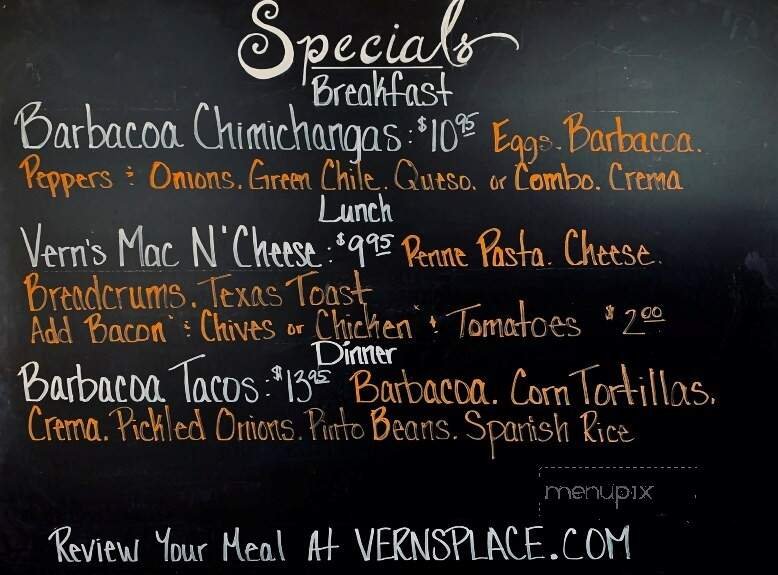 Specials
Breakfast
Barbacoa Chimichangas: $10.95 Eggs. Barbacoa.
Peppers & Onions. Green Chile. Queso. or Combo. Crema
Lunch
Vern's Mac N' Cheese: $9.95 Penne Pasta. Cheese.
Breadcrums. Texas Toast
Add Bacon & Chives or Chicken & Tomatoes $2.00
Dinner
Barbacoa Tacos: $13.95 Barbacoa. Corn Tortillas.
Crema. Pickled Onions. Pinto Beans. Spanish Rice
menupix
Review Your Meal At VERNSPLACE.COM